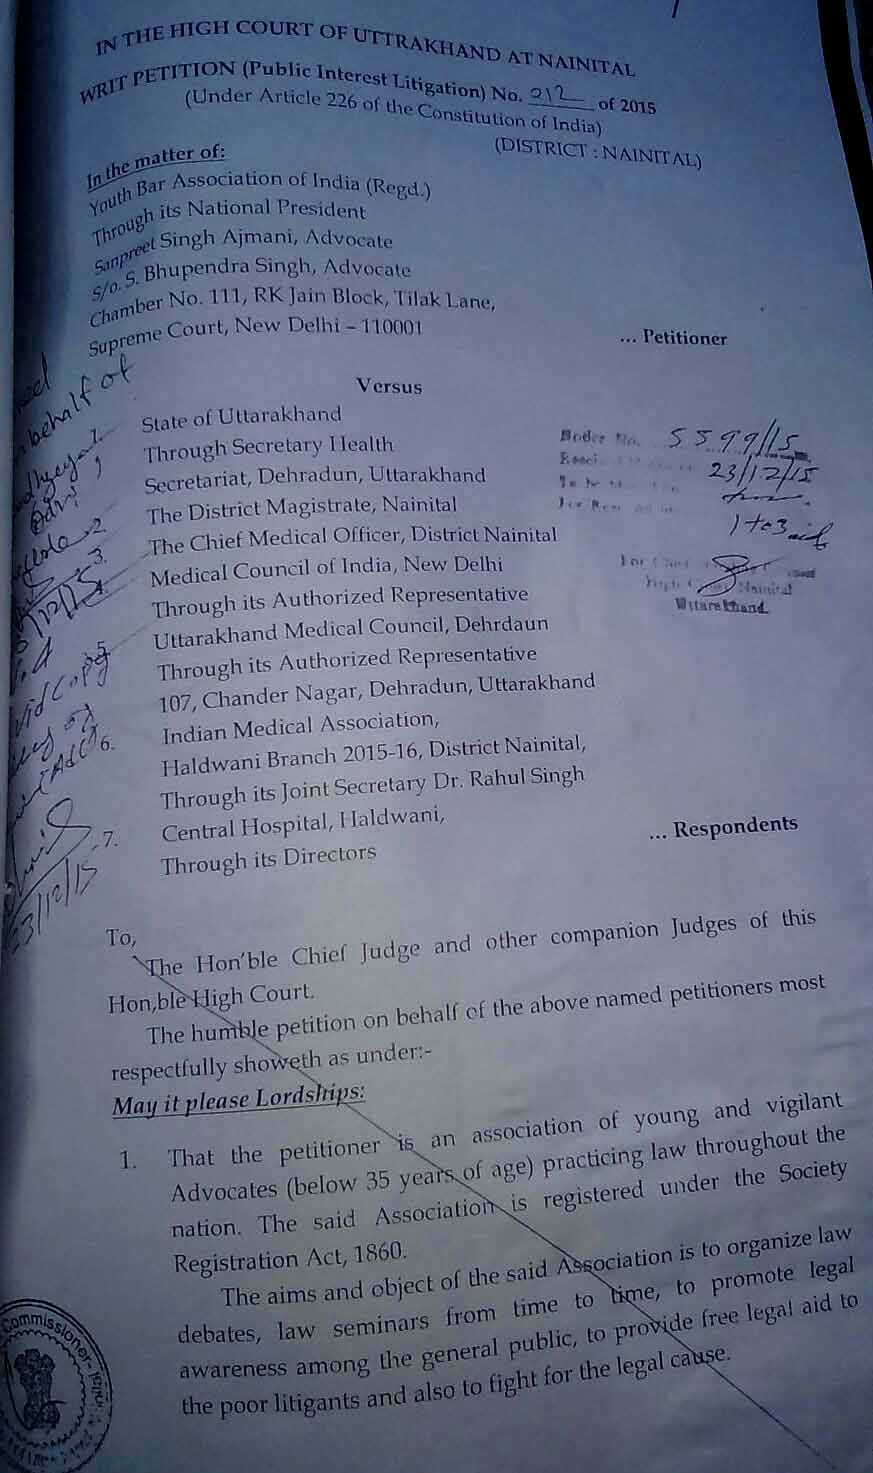 IN THE HIGH COURT OF UTTRAKHAND AT NAINITAL
WRIT PETITION (Public Interest Litigation) No. 212 of 2015
(Under Article 226 of the Constitution of India)
(DISTRICT : NAINITAL)
In the matter of:
Youth Bar Association of India (Regd.)
Through its National President
Sanpreet Singh Ajmani, Advocate
S/o. S. Bhupendra Singh, Advocate
Chamber No. 111, RK Jain Block, Tilak Lane,
Supreme Court, New Delhi – 110001
... Petitioner
Versus
1. State of Uttarakhand
Through Secretary Health
Secretariat, Dehradun, Uttarakhand
2. The District Magistrate, Nainital
3. The Chief Medical Officer, District Nainital
Medical Council of India, New Delhi
Through its Authorized Representative
5. Uttarakhand Medical Council, Dehrdaun
Through its Authorized Representative
107, Chander Nagar, Dehradun, Uttarakhand
6. Indian Medical Association,
Haldwani Branch 2015-16, District Nainital,
Through its Joint Secretary Dr. Rahul Singh
7. Central Hospital, Haldwani,
Through its Directors
... Respondents
No. 5599/15
23/12/15
1 to 3
Nainital
Uttarakhand.
behalf of
23/12/15
To,
The Hon'ble Chief Judge and other companion Judges of this
Hon,ble High Court.
The humble petition on behalf of the above named petitioners most
respectfully showeth as under:-
May it please Lordships:
1. That the petitioner is an association of young and vigilant
Advocates (below 35 years of age) practicing law throughout the
nation. The said Association is registered under the Society
Registration Act, 1860.
The aims and object of the said Association is to organize law
debates, law seminars from time to time, to promote legal
awareness among the general public, to provide free legal aid to
the poor litigants and also to fight for the legal cause.
Commissioner